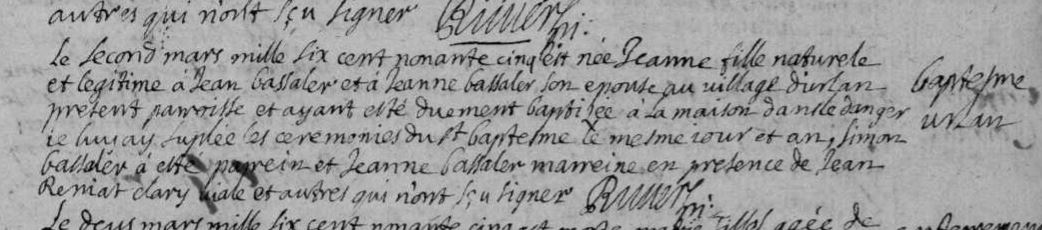 autres qui n'ont sçu signer
Le second mars mille six cent nonante cinq est née Jeanne fille naturele
et legitime à Jean bassaler et à Jeanne bassaler son epouse au village d'urlan
present parroisse et ayant esté duement baptisée à la maison dans le danger
ie luy ay suplée les ceremonies du st baptesme le mesme iour et an, simon
bassaler à esté parrein et Jeanne bassaler marreine en presence de Jean
clary viale et autres qui n'ont sçu signer
baptesme
urlan
Le deus mars mille six cent nonante cinq est agée de